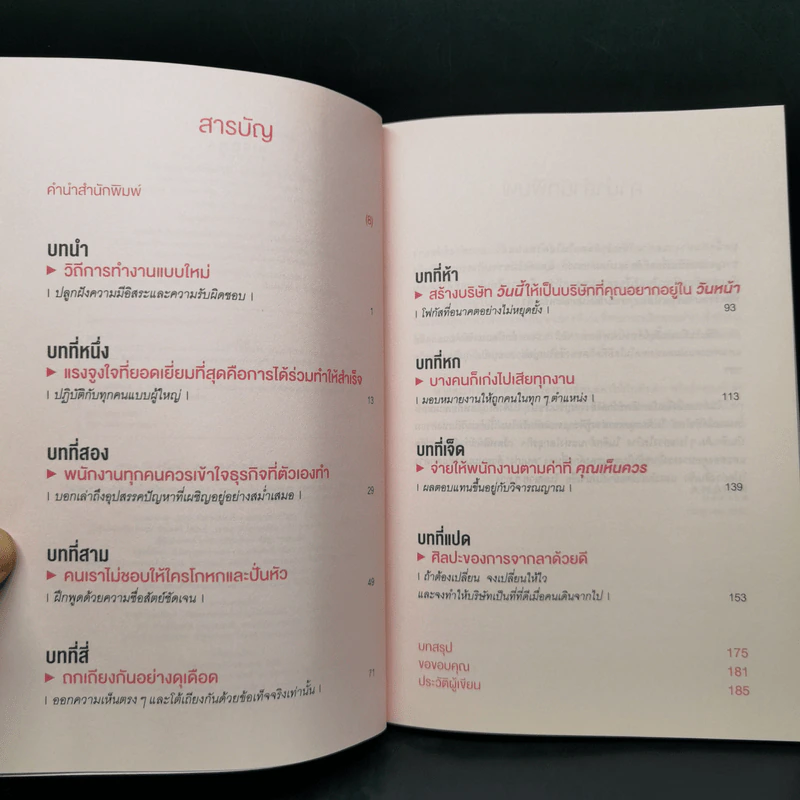 สารบัญ
คำนำสำนักพิมพ์
(8)
บทนำ
▶ วิถีการทำงานแบบใหม่
| ปลูกฝังความมีอิสระและความรับผิดชอบ |
1
บทที่หนึ่ง
▶ แรงจูงใจที่ยอดเยี่ยมที่สุดคือการได้ร่วมทำให้สำเร็จ
| ปฏิบัติกับทุกคนแบบผู้ใหญ่ | 13
บทที่สอง
▶ พนักงานทุกคนควรเข้าใจธุรกิจที่ตัวเองทำ
| บอกเล่าถึงอุปสรรคปัญหาที่เผชิญอยู่อย่างสม่ำเสมอ | 29
บทที่สาม
▶ คนเราไม่ชอบให้ใครโกหกและปั่นหัว
| ฝึกพูดด้วยความซื่อสัตย์ชัดเจน | 49
บทที่สี่
▶ ถกเถียงกันอย่างดุเดือด 71
| ออกความเห็นตรง ๆ และโต้เถียงกันด้วยข้อเท็จจริงเท่านั้น |
บทที่ห้า
▶ สร้างบริษัท วันนี้ ให้เป็นบริษัทที่คุณอยากอยู่ใน วันหน้า
| โฟกัสที่อนาคตอย่างไม่หยุดยั้ง | 93
บทที่หก
▶ บางคนก็เก่งไปเสียทุกงาน
| มอบหมายงานให้ถูกคนในทุก ๆ ตำแหน่ง | 113
บทที่เจ็ด
▶ จ่ายให้พนักงานตามค่าที่ คุณเห็นควร
| ผลตอบแทนขึ้นอยู่กับวิจารณญาณ | 139
บทที่แปด
▶ ศิลปะของการจากลาด้วยดี
| ถ้าต้องเปลี่ยน จงเปลี่ยนให้ไว
และจงทำให้บริษัทเป็นที่ที่ดีเมื่อคนเดินจากไป | 153
บทสรุป 175
ขอขอบคุณ 181
ประวัติผู้เขียน 185